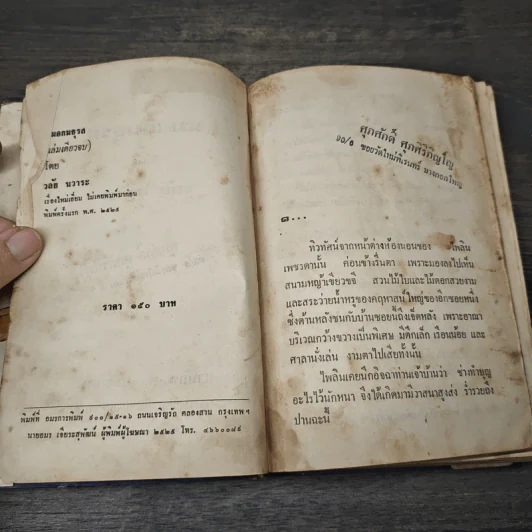 มอกมธุรส
(เล่มเดียวจบ)
โดย
วลัย นวาระ
เรื่องใหม่เอี่ยม ไม่เคยพิมพ์มาก่อน
พิมพ์ครั้งแรก พ.ศ. ๒๕๒๕
ราคา ๑๕๐ บาท
พิมพ์ที่ อมรการพิมพ์ ๕๐๐/๒๕-๑๖ ถนนเจริญรัถ คลองสาน กรุงเทพฯ
นายอมร เจียระสุพัฒน์ ผู้พิมพ์ผู้โฆษณา ๒๕๒๕ โทร. ๔๖๖๐๐๘๕
ศุภศักดิ์ ศุภศิริภิญโญ
๖๐/๑ ซอยวัดใหม่พิเรนทร์ บางกอกใหญ่
๑...
ทิวทัศน์จากหน้าต่างห้องนอนของ ไพลิน
เพชรดานั้น ค่อนข้างรื่นตา เพราะมองลงไปเห็น
สนามหญ้าเขียวขจี สวนไม้ใบและไม้ดอกสวยงาม
และสระว่ายน้ำหรูของคฤหาสน์ใหญ่ของอีกซอยหนึ่ง
ซึ่งด้านหลังชนกับบ้านซอยนี้ถึงเจ็ดหลัง เพราะอาณา
บริเวณกว้างขวางเป็นพิเศษ มีตึกเล็ก เรือนน้อย และ
ศาลานั่งเล่น งามตาไปเสียทั้งนั้น
ไพลินเคยนึกอิจฉาท่านเจ้าบ้านว่า ช่างทำบุญ
อะไรไว้นักหนา จึงได้เกิดมามีวาสนาสูงส่ง ร่ำรวยถึง
ปานฉะนี้